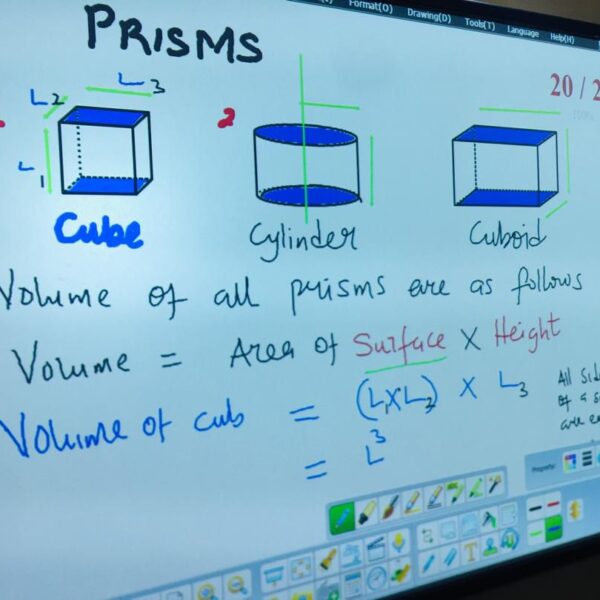 Format(O) Drawing(D) Tools(T) Language Help(H)
PRISMS
20 / 2
L2 L3
L1
2
Cube Cylinder Cuboid
Volume of all prisms are as follows
Volume = Area of Surface X Height
Volume of cub = (L1XL2) X L3
= L3
All Sid
of a s
are e
Property:
T